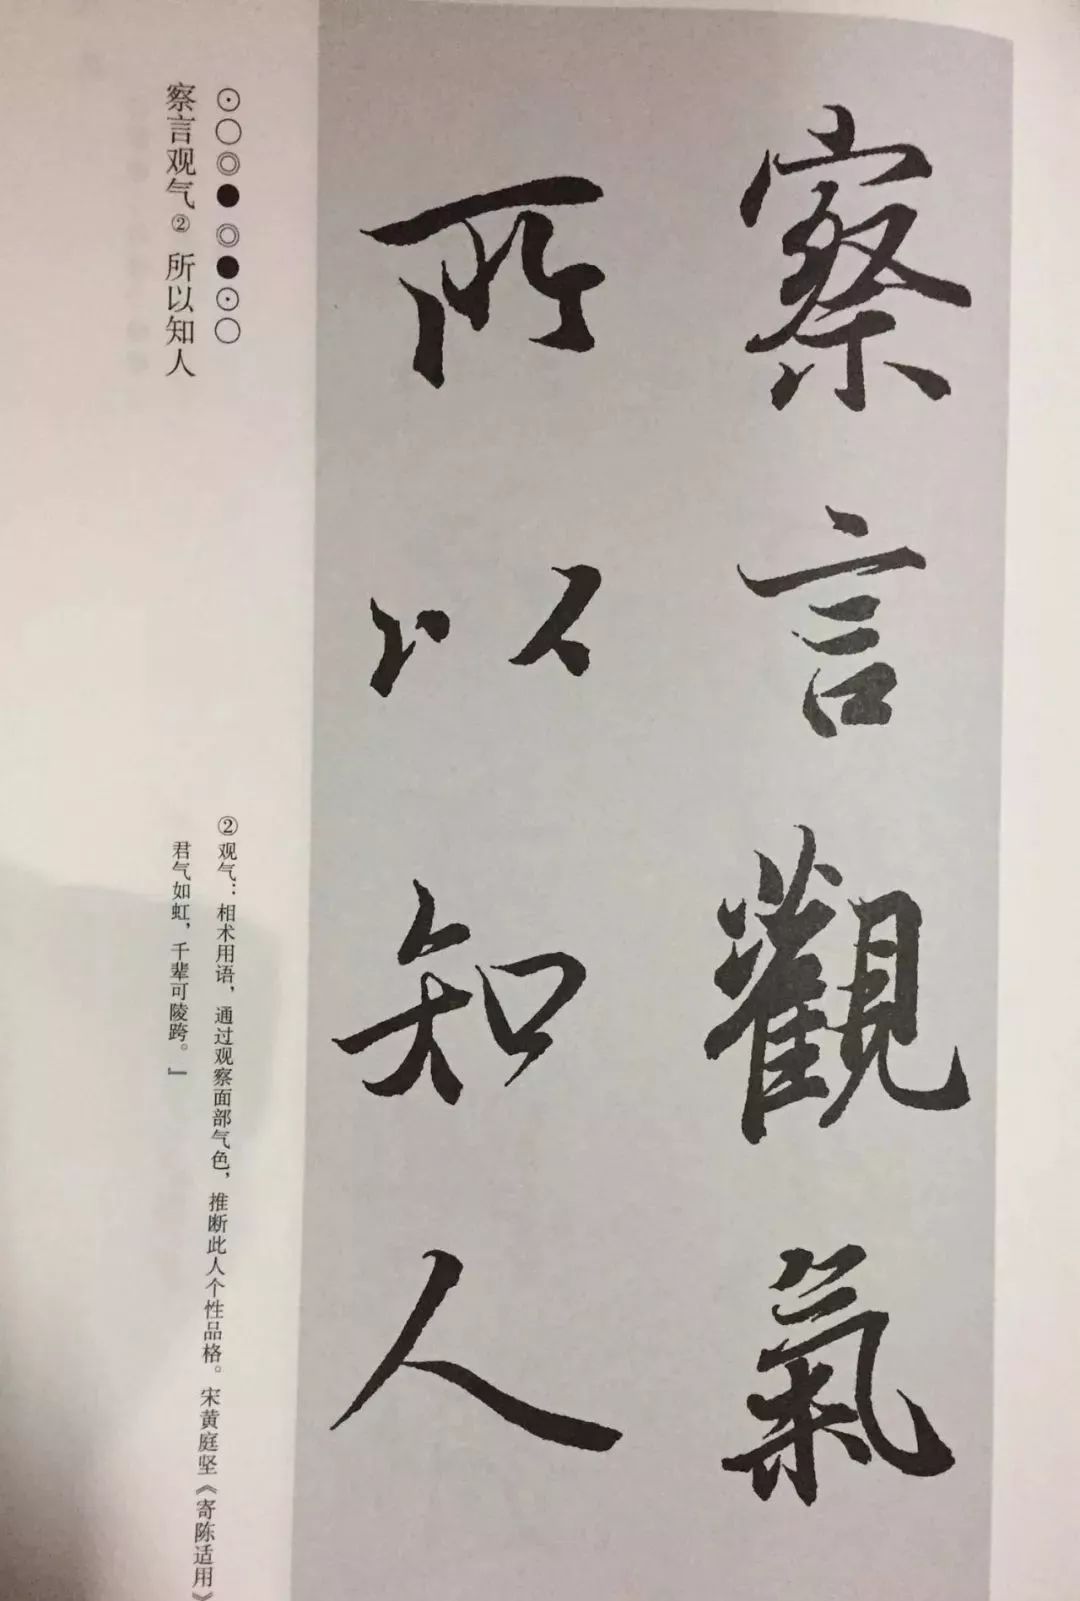 察言觀氣
所以知人
⊙○◎●◎●⊙○
察言观气② 所以知人
②观气：相术用语，通过观察面部气色，推断此人个性品格。宋黄庭坚《寄陈适用》
君气如虹，千辈可陵跨。』